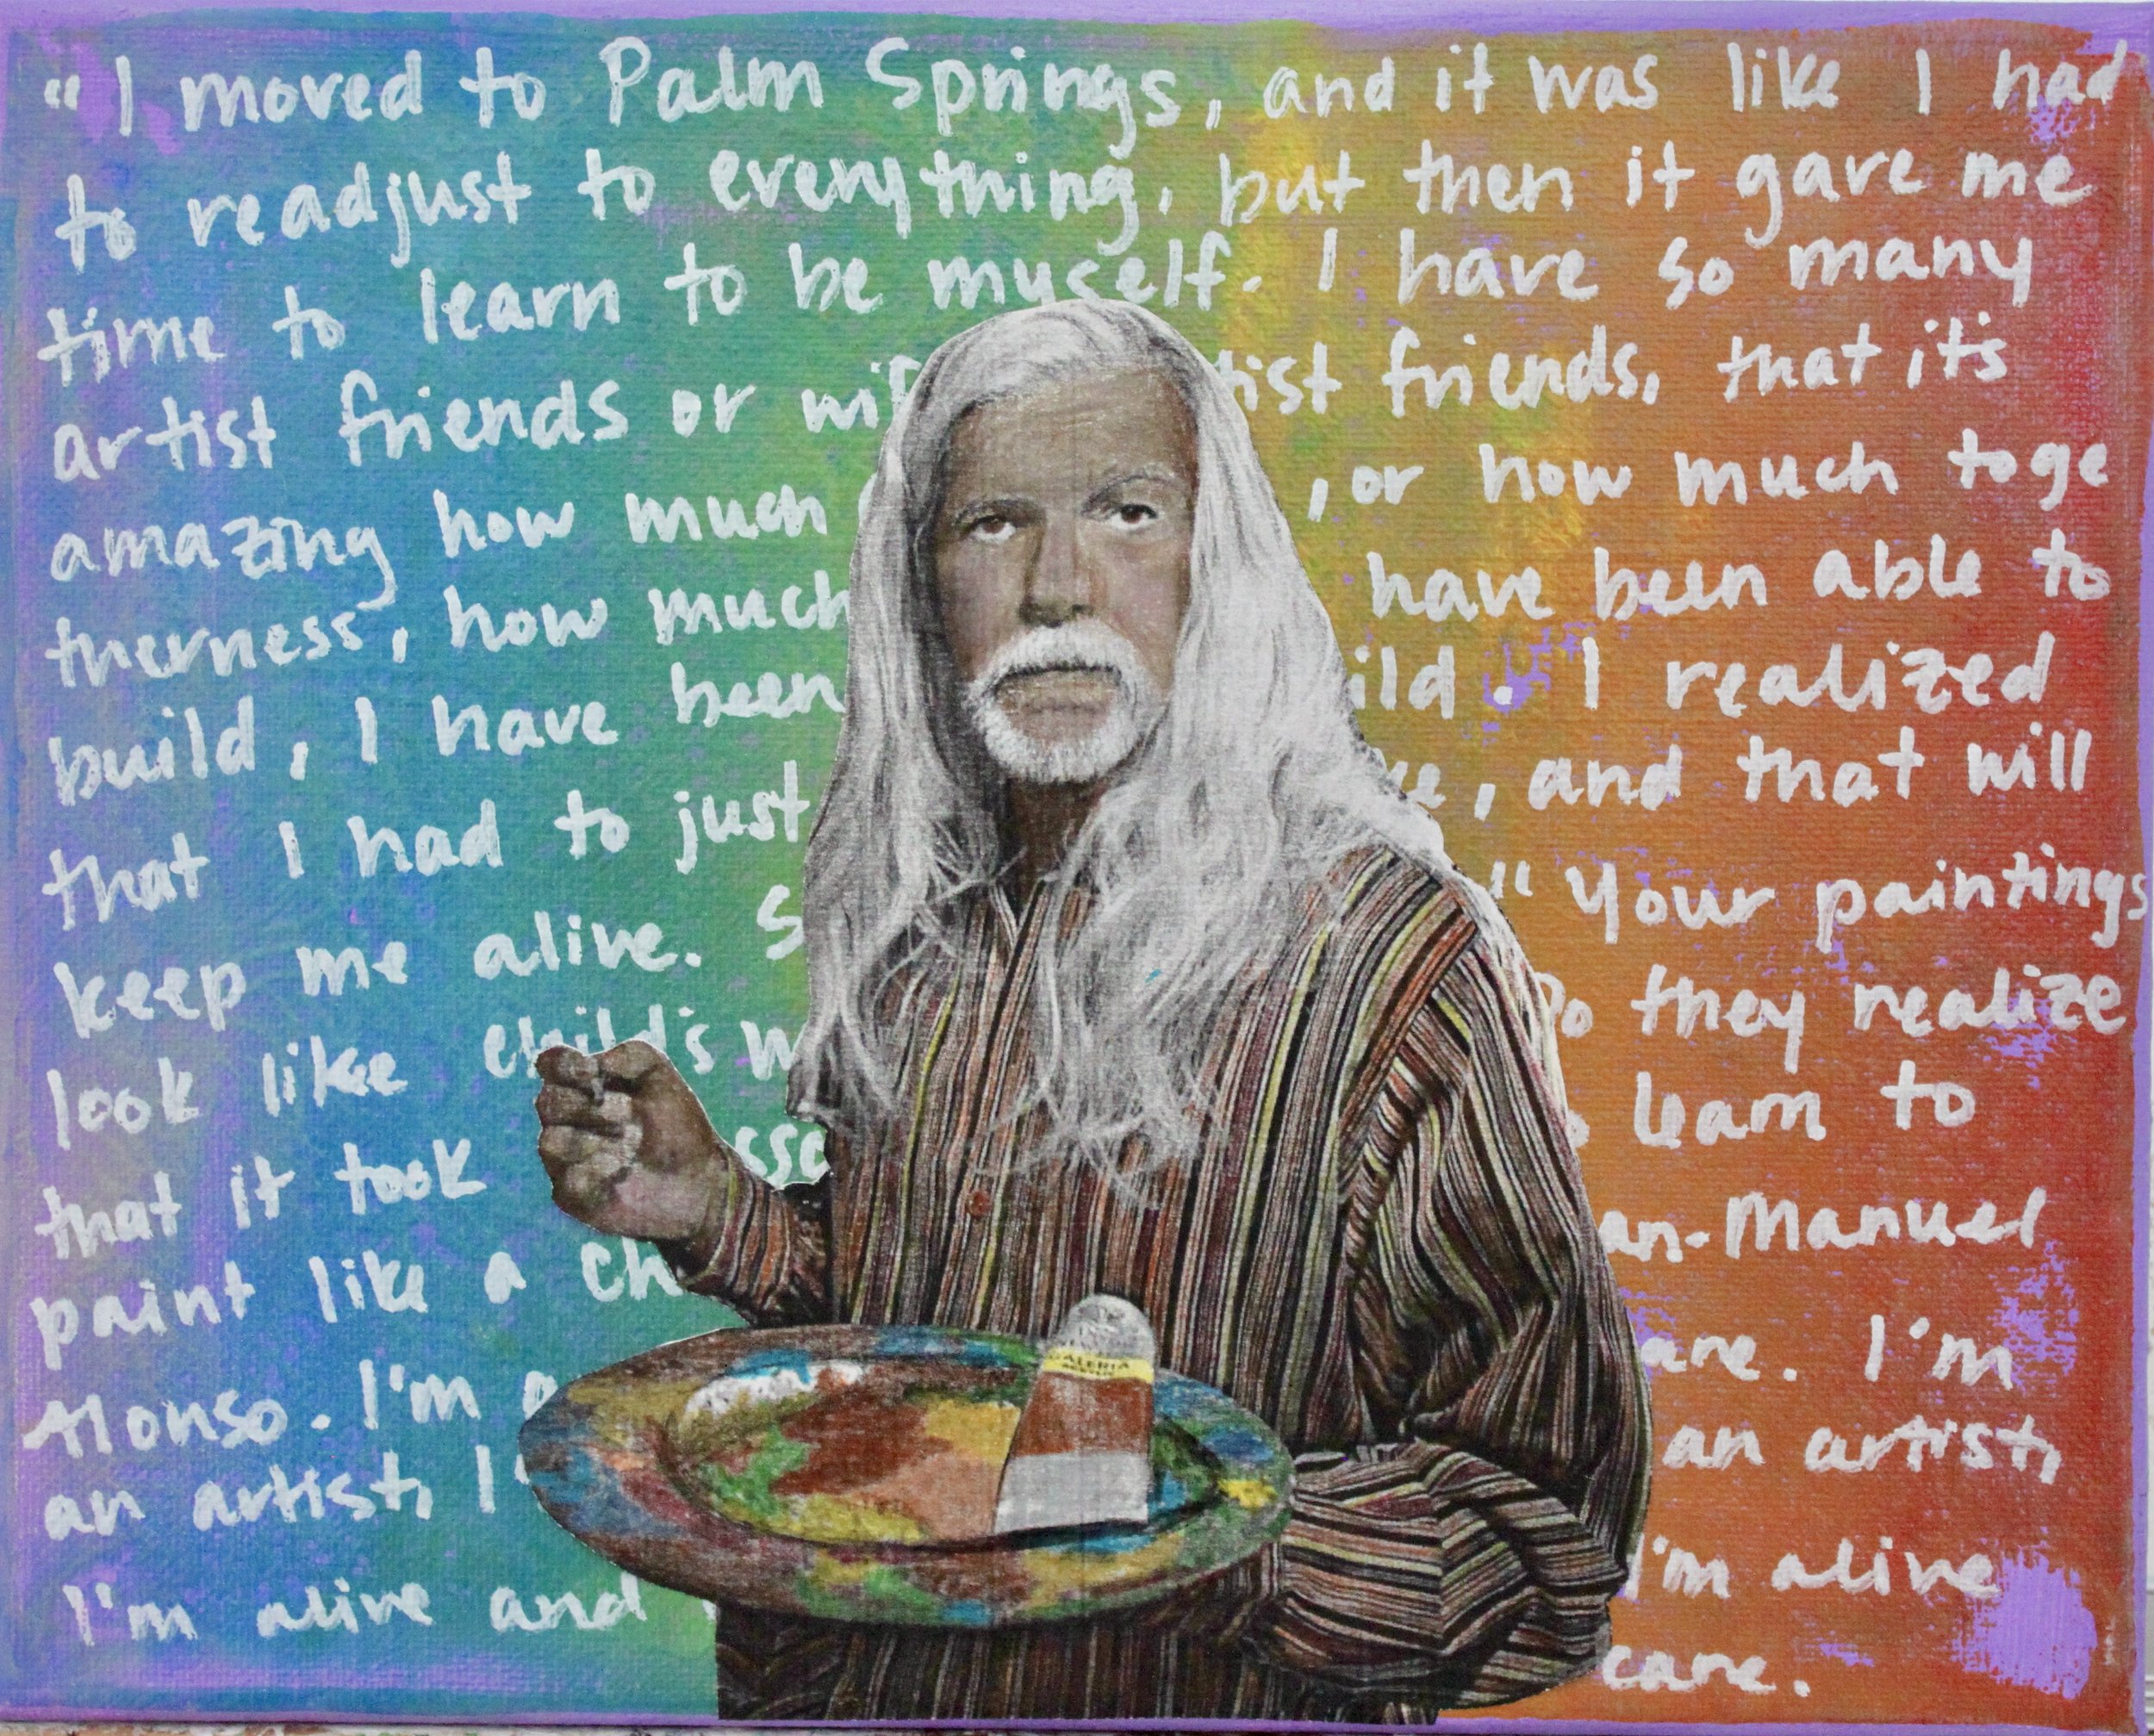 "I moved to Palm Springs, and it was like I had
to readjust to everything, but then it gave me
time to learn to be myself. I have so many
artist friends or tist friends, that it's
amazing how much , or how much toge
therness, how much have been able to
build, I have been ild. I realized
that I had to just , and that will
keep me alive. " Your paintings
look like child's Do they realize
that it took learn to
paint like a an-Manuel
Alonso. I'm are. I'm
an artist, I an artist,
I'm alive and I'm alive
care.
GALERIA